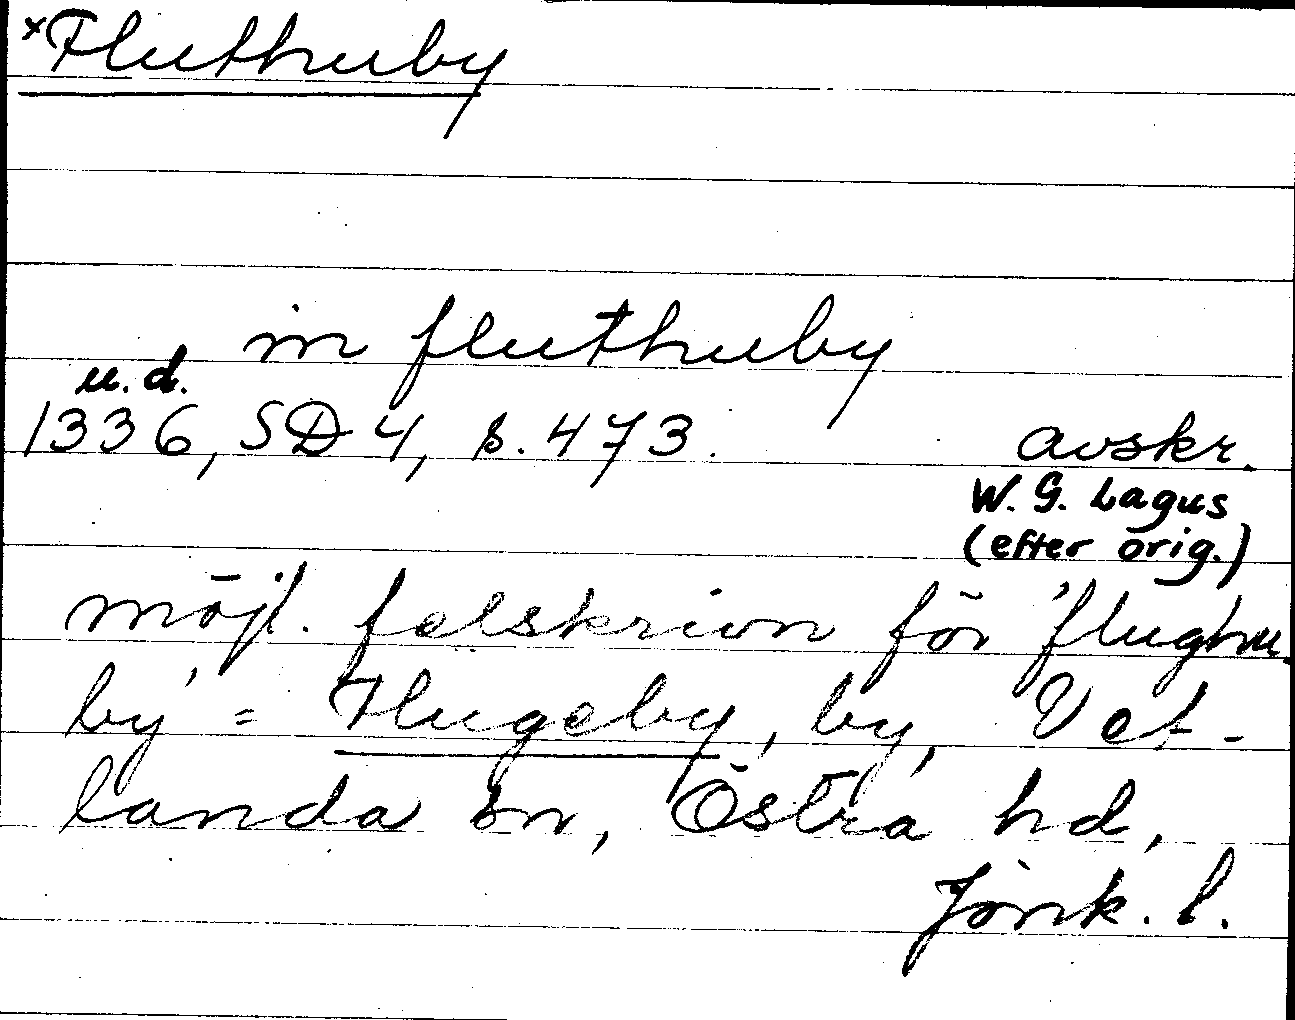 ×Fluthuby
in fluthuby
u.d.
1336, SD 4, s. 473.
avskr.
W. G. Lagus
(efter orig.)
möjl. felskrivn för 'flughu-
by' = Flugeby, by, Vet-
landa sn, Östra hd,
Jönk. l.